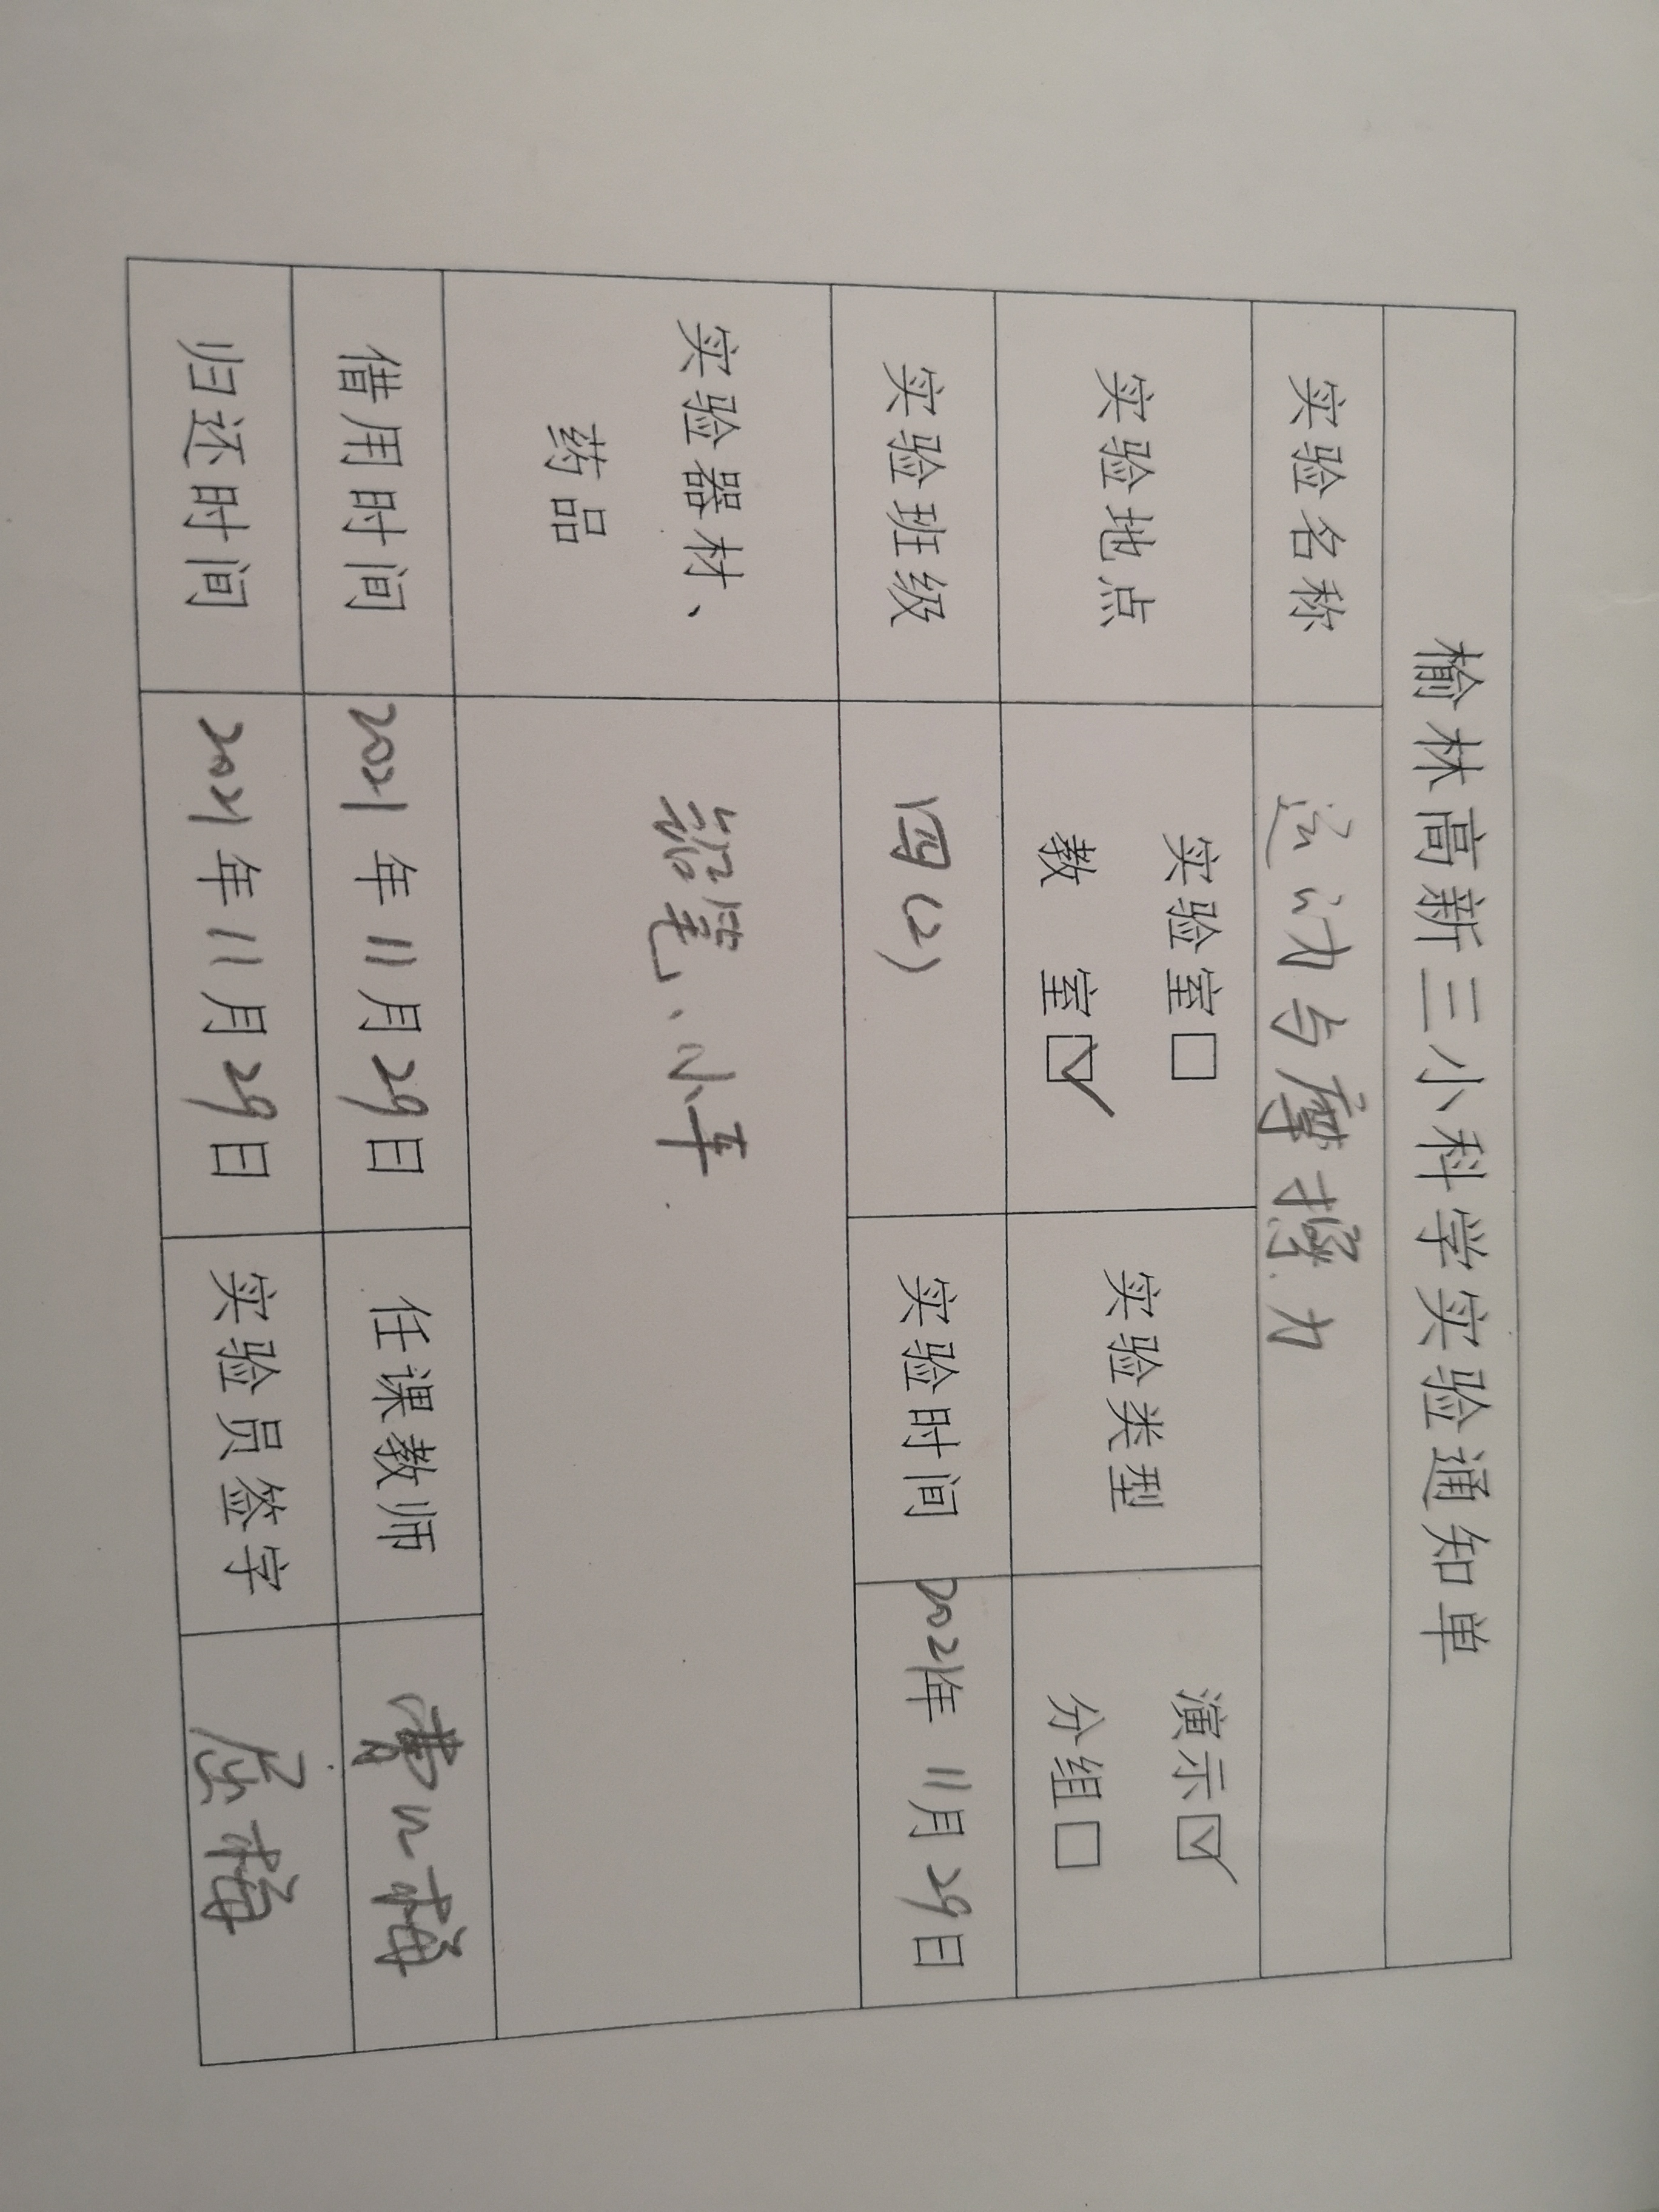 榆林高新三小科学实验通知单
实验名称 运动与摩擦力
实验地点 实验室□ 教 室☑ 实验类型 演示☑ 分组□
实验班级 四(2) 实验时间 2021年 11月29日
实验器材、药品 铅笔、小车
借用时间 2021年11月29日 任课教师
归还时间 2021年11月29日 实验员签字